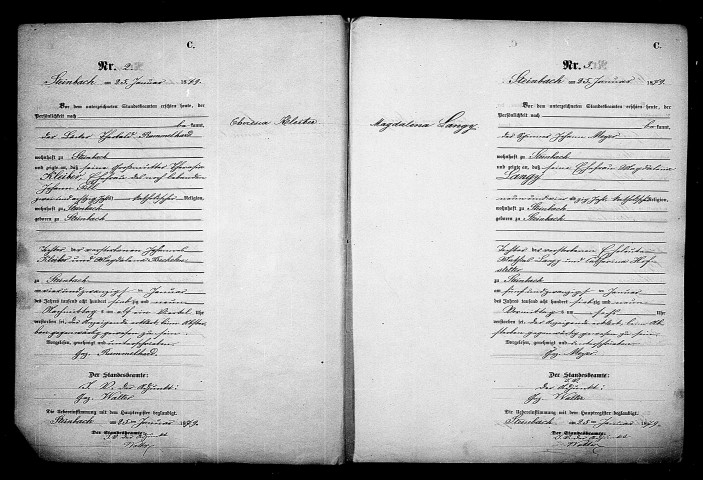 C.
Nr. 2.
Steinbach am 25. Januar 1879.
Vor dem unterzeichneten Standesbeamten erschien heute, der
Persönlichkeit nach
be kannt,
der Theobald Rommelhard
wohnhaft zu Steinbach
und zeigte an, daß seine Großmutter Theresia
Kleiber, Ehefrau des noch lebenden
Johann
Religion,
wohnhaft zu Steinbach
geboren zu Steinbach
Tochter des verstorbenen
Kleiber und Magdalena
zu Steinbach
am vierundzwanzigsten Januar
des Jahres tausend acht hundert siebzig und neun
Nachmittag um elf ein Viertel Uhr
verstorben sei.
Vorgelesen, genehmigt und unterschrieben
Gez. Rommelhard.
Der Standesbeamte:
I. V. der Adjunkt:
Gez. Walter
Die Uebereinstimmung mit dem Hauptregister beglaubigt.
Steinbach am 25ten Januar 1879.
Der Standesbeamte:
I. V. der Adjunkt
Walter
Theresia Kleiber
Magdalena Langy
C.
Nr. 3.
Steinbach am 25. Januar 1879.
Vor dem unterzeichneten Standesbeamten erschien heute, der
Persönlichkeit nach
be kannt,
der Johann Meyer
wohnhaft zu Steinbach
und zeigte an, daß seine Ehefrau Magdalena
Langy
Religion,
wohnhaft zu Steinbach
geboren zu Steinbach
Tochter der verstorbenen Eheleuten
Langy und Catharina Hof
stetter
zu Steinbach
am fünfundzwanzigsten Januar
des Jahres tausend acht hundert siebzig und neun
Vormittag um sechs Uhr
verstorben sei.
Vorgelesen, genehmigt und unterschrieben
Gez. Meyer
Der Standesbeamte:
I. V.
der Adjunkt:
Gez. Walter
Die Uebereinstimmung mit dem Hauptregister beglaubigt.
Steinbach am 25ten Januar 1879.
Der Standesbeamte:
I. V. der Adjunkt
Walter